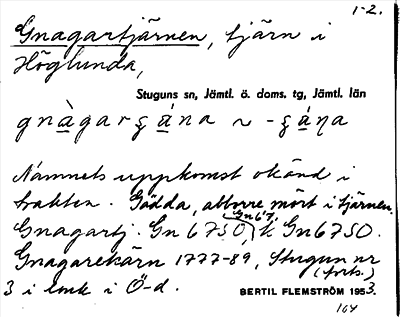 1-2.
Gnagartjärnen, tjärn i
Höglunda,
Stuguns sn, Jämtl. ö. doms. tg, Jämtl. län
Namnets uppkomst okänd i
trakten. Gädda, abborre mört i tjärnen.
Gn 67,
Gnagartj. Gn 6750, k Gn6750.
Gnagarekärn 1777-89, Stugun nr
(forts.)
3 i LmK i Ö-d.
BERTIL FLEMSTRÖM 1953.
164